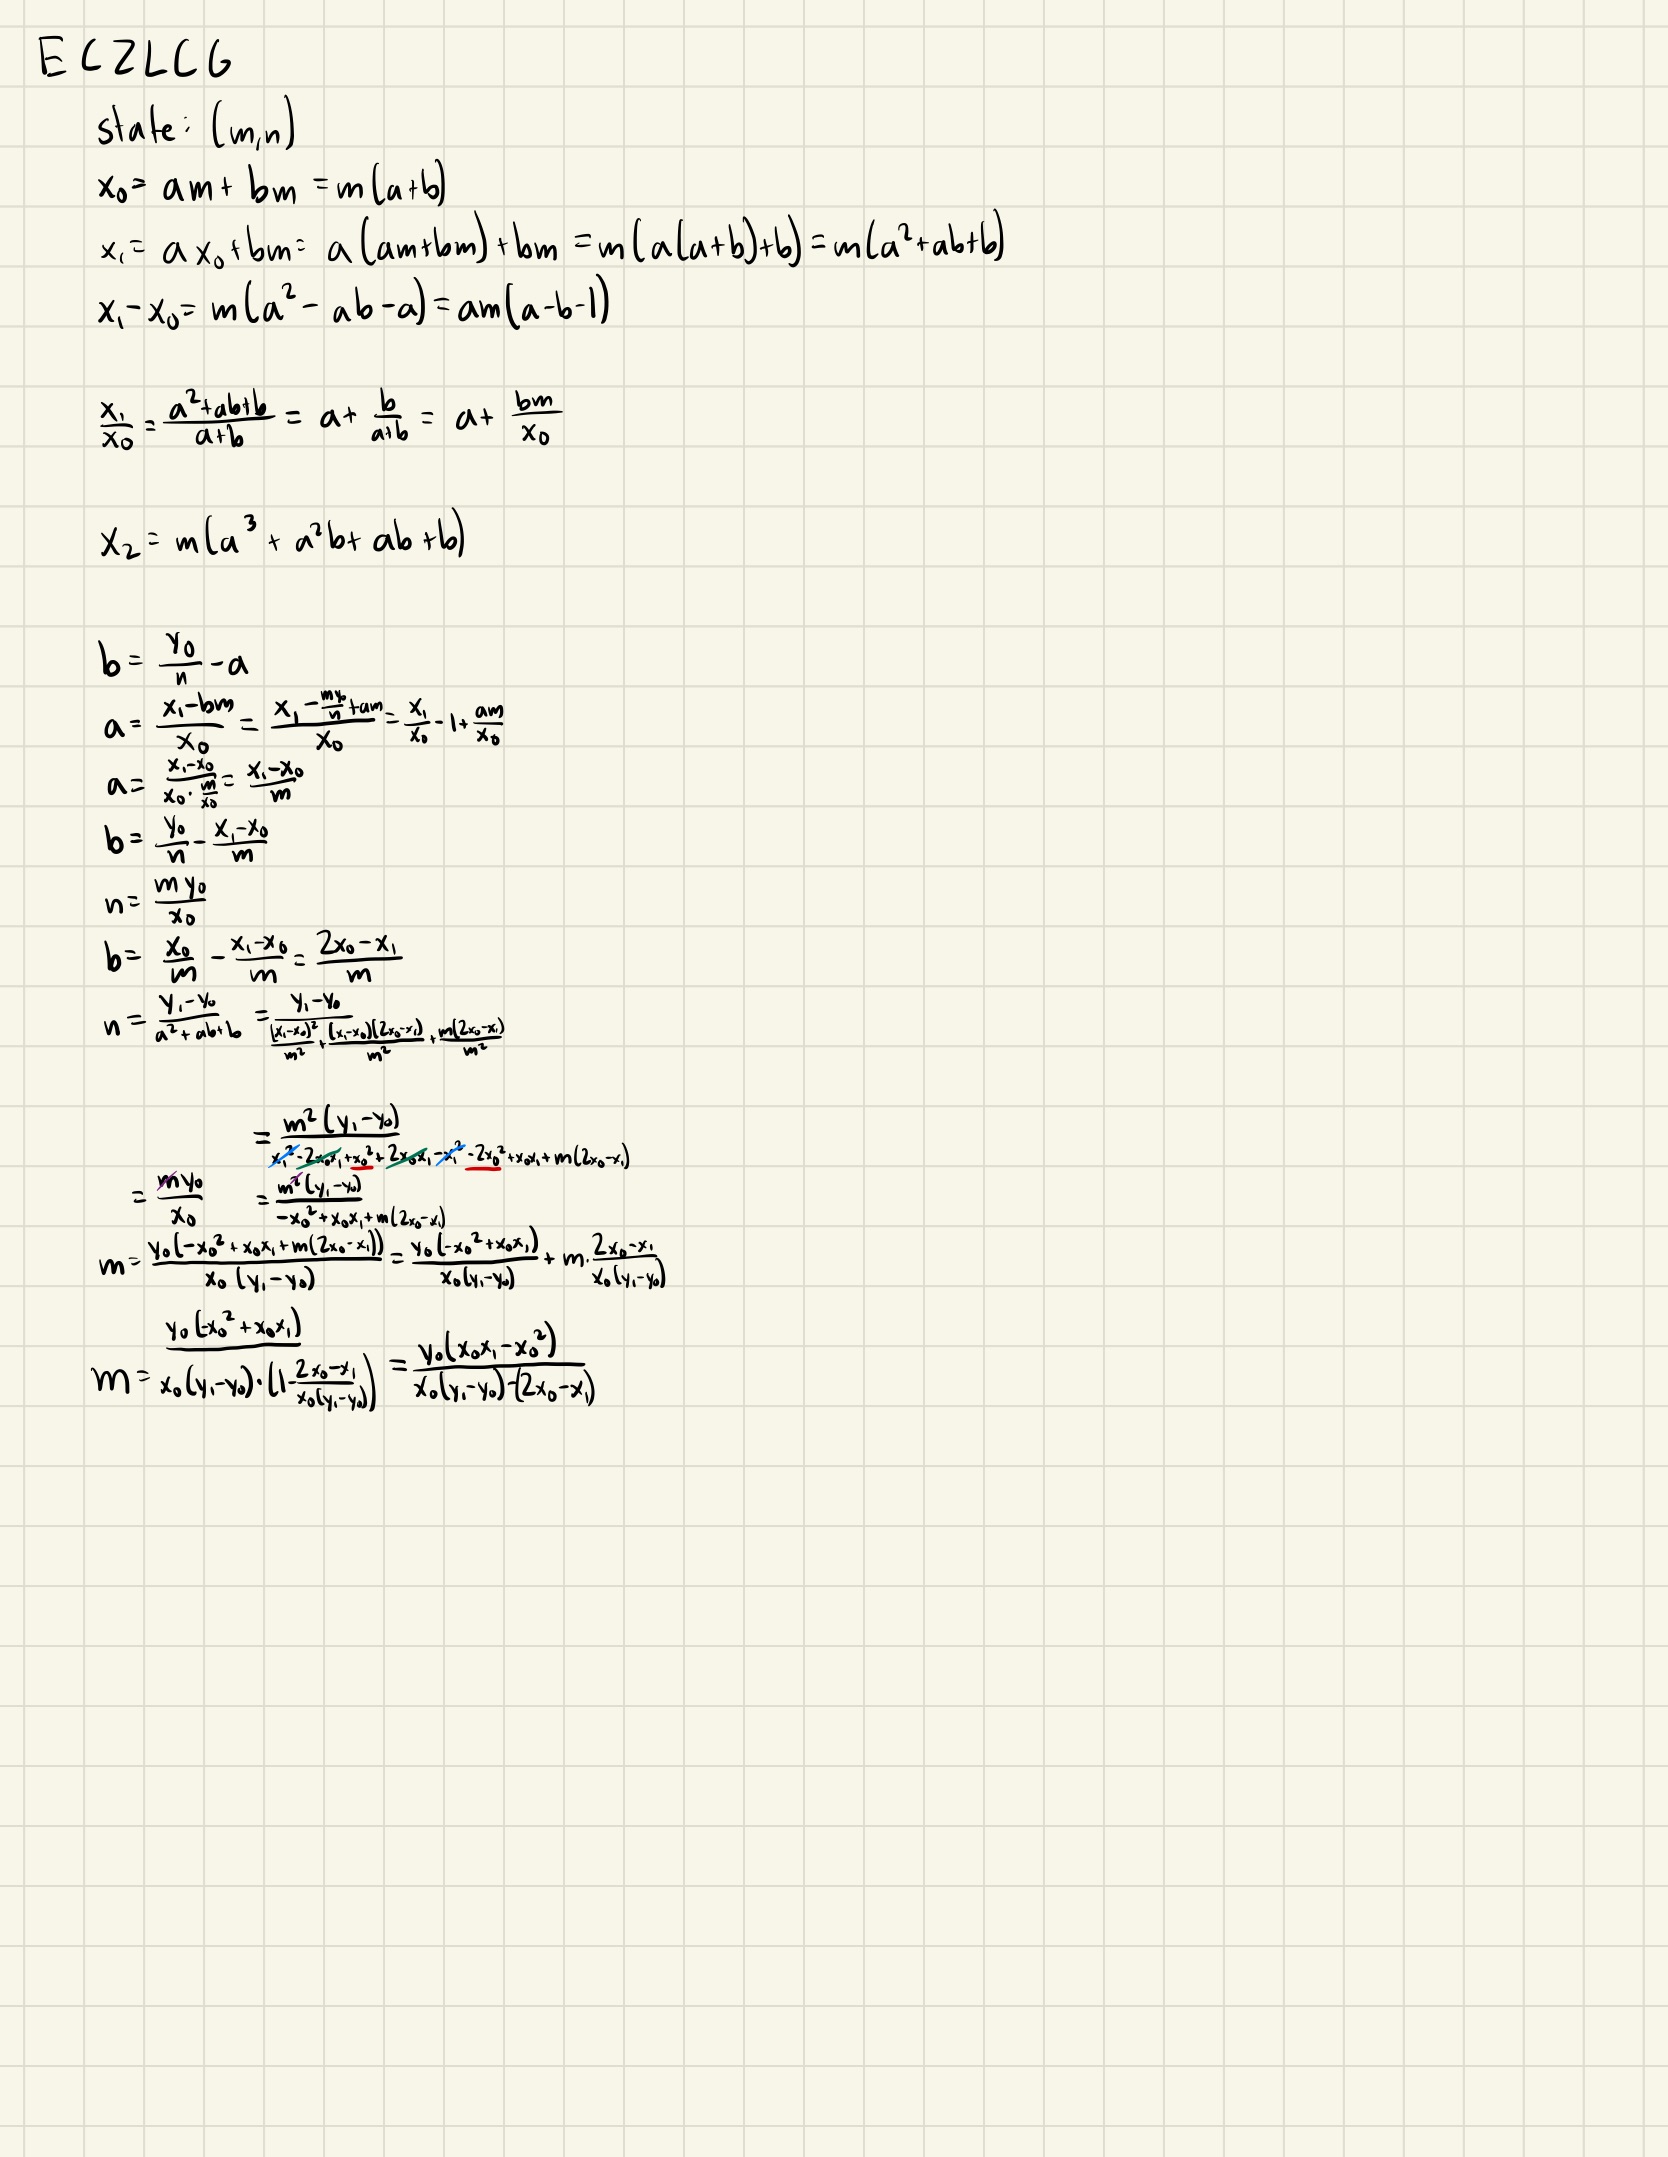 ECZLCG
state: (m,n)
x₀ = am + bm = m(a+b)
x₁ = ax₀ + bm = a(am+bm) + bm = m(a(a+b)+b) = m(a²+ab+b)
x₁ - x₀ = m(a² - ab - a) = am(a-b-1)
x₁/x₀ = (a²+ab+b)/(a+b) = a + b/(a+b) = a + bm/x₀
x₂ = m(a³ + a²b + ab + b)
b = y₀/n - a
a = (x₁-bm)/x₀ = (x₁ - my₀/n + am)/x₀ = x₁/x₀ - 1 + am/x₀
a = (x₁-x₀)/(x₀·m/x₀) = (x₁-x₀)/m
b = y₀/n - (x₁-x₀)/m
n = my₀/x₀
b = x₀/m - (x₁-x₀)/m = (2x₀-x₁)/m
n = (y₁-y₀)/(a²+ab+b) = (y₁-y₀)/((x₁-x₀)²/m² + (x₁-x₀)(2x₀-x₁)/m² + m(2x₀-x₁)/m²)
= m²(y₁-y₀)/(x₁²-2x₀x₁+x₀²+2x₀x₁-x₁²-2x₀²+x₀x₁+m(2x₀-x₁))
= my₀/x₀ = m²(y₁-y₀)/(-x₀²+x₀x₁+m(2x₀-x₁))
m = y₀(-x₀²+x₀x₁+m(2x₀-x₁))/(x₀(y₁-y₀)) = y₀(-x₀²+x₀x₁)/(x₀(y₁-y₀)) + m·(2x₀-x₁)/(x₀(y₁-y₀))
m = y₀(-x₀²+x₀x₁)/(x₀(y₁-y₀)·(1-(2x₀-x₁)/(x₀(y₁-y₀)))) = y₀(x₀x₁-x₀²)/(x₀(y₁-y₀)-(2x₀-x₁))